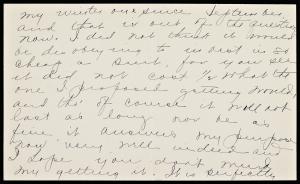 my winter one since September,
and that is out of the question
now. I did not think it would
be disobeying to invest in so
cheap a suit, for you see
it did not cost ½ what the
one I proposed getting would,
and tho' of course it will not
last as long nor be as
fine it answers my purpose
now very well indeed and
I hope you dont mind
my getting it. It is perfectly